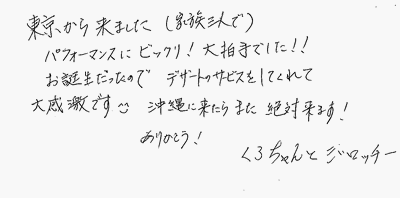 東京から来ました（家族三人で）
パフォーマンスにビックリ！大拍手でした！！
お誕生だったので デザートのサービスをしてくれて
大感激です 沖縄に来たらまた絶対来ます！
ありがとう！
くろちゃんとジロッチー